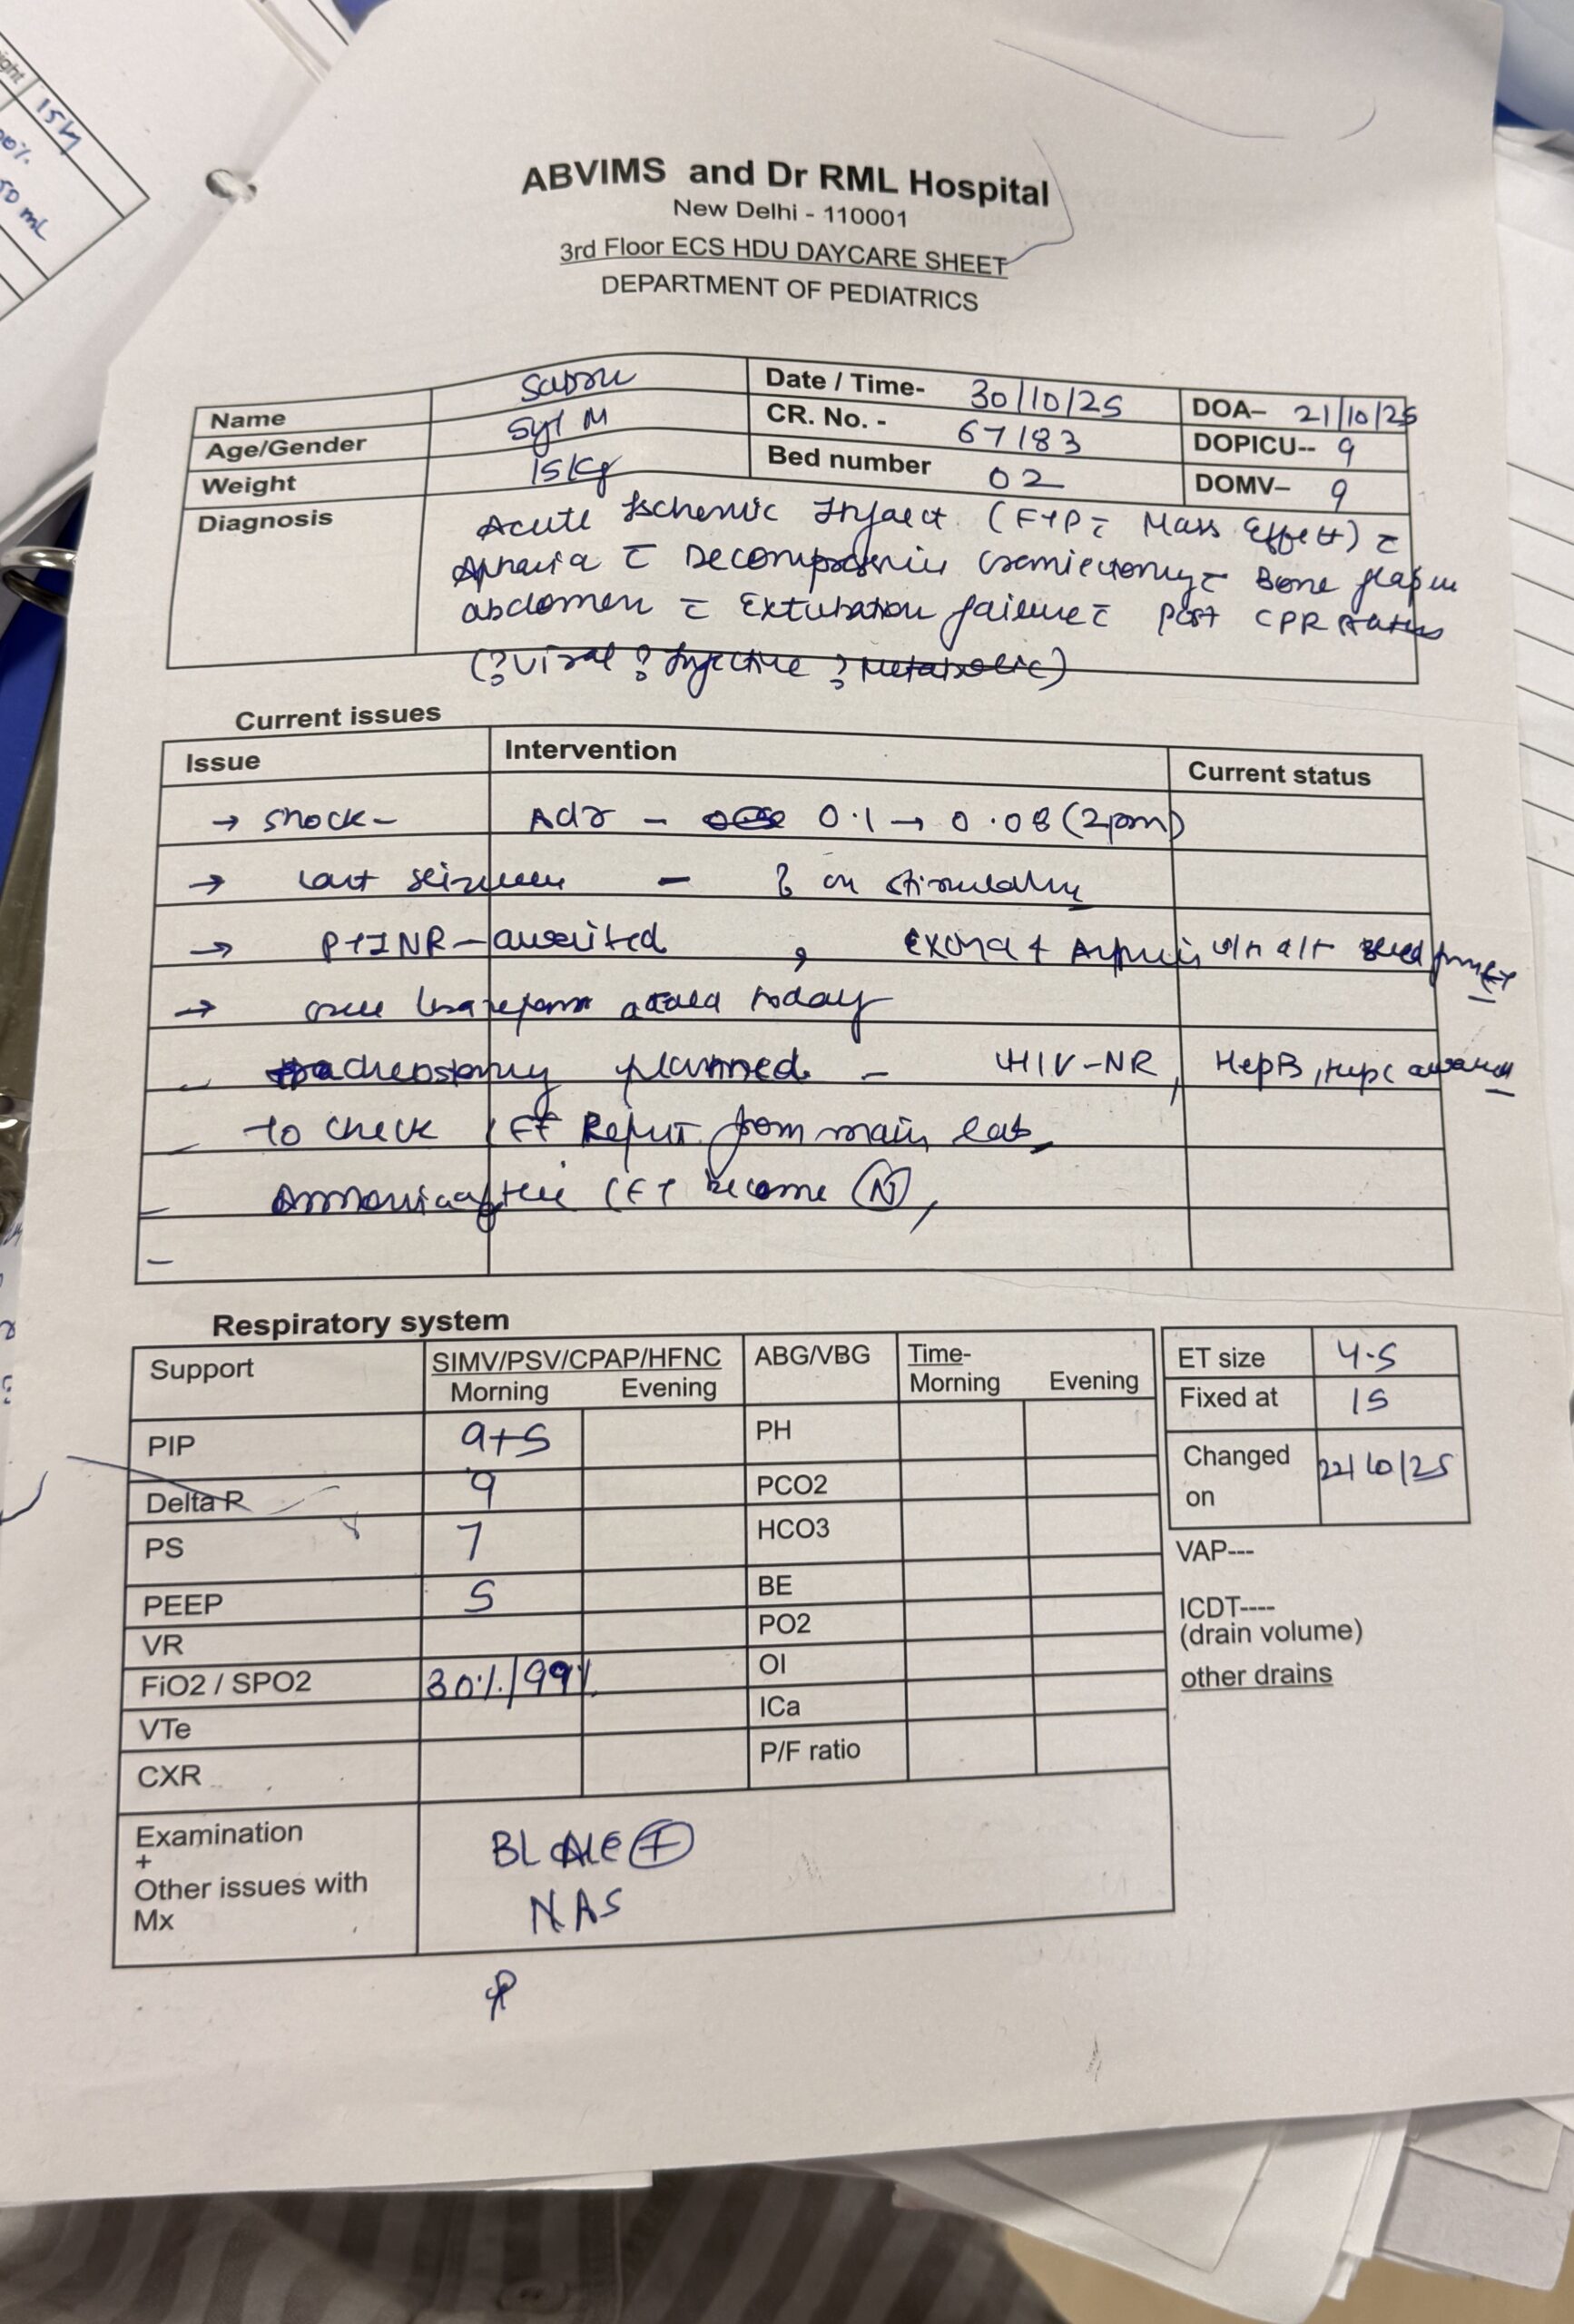 15kg
50 mL
ABVIMS and Dr RML Hospital
New Delhi - 110001
3rd Floor ECS HDU DAYCARE SHEET
DEPARTMENT OF PEDIATRICS
Name
Date / Time- 30/10/25
DOA- 21/10/25
Age/Gender 5y/ M
CR. No. - 67183
DOPICU-- 9
Weight 15kg
Bed number 02
DOMV- 9
Diagnosis Acute Ischemic Infarct (FTP c̄ Mass Effect) c̄
c̄ Decompressive craniectomy c̄ Bone flap in
abdomen c̄ Extubation failure c̄ post CPR status
(?Viral ?Infective ?Metabolic)
Current issues
Issue Intervention Current status
→ Shock - Adr - 0.1 → 0.08 (2pm)
→ last seizure - ? on stimulation
→ PTINR - awaited ,
→ added today
- tracheostomy planned. - HIV-NR, HepB, HepC
- to check Report from main lab,
- Ammonia become Ⓝ,
-
Respiratory system
Support SIMV/PSV/CPAP/HFNC ABG/VBG Time-
Morning Evening Morning Evening
ET size 4.5
Fixed at 15
Changed on 22/10/25
PIP 9+5 PH
Delta P 9 PCO2
PS 7 HCO3
PEEP 5 BE
VR PO2
FiO2 / SPO2 30%/99% OI
VTe ICa
CXR P/F ratio
VAP---
ICDT----
(drain volume)
other drains
Examination
+
Other issues with
Mx
BL AE ⊕
NAS